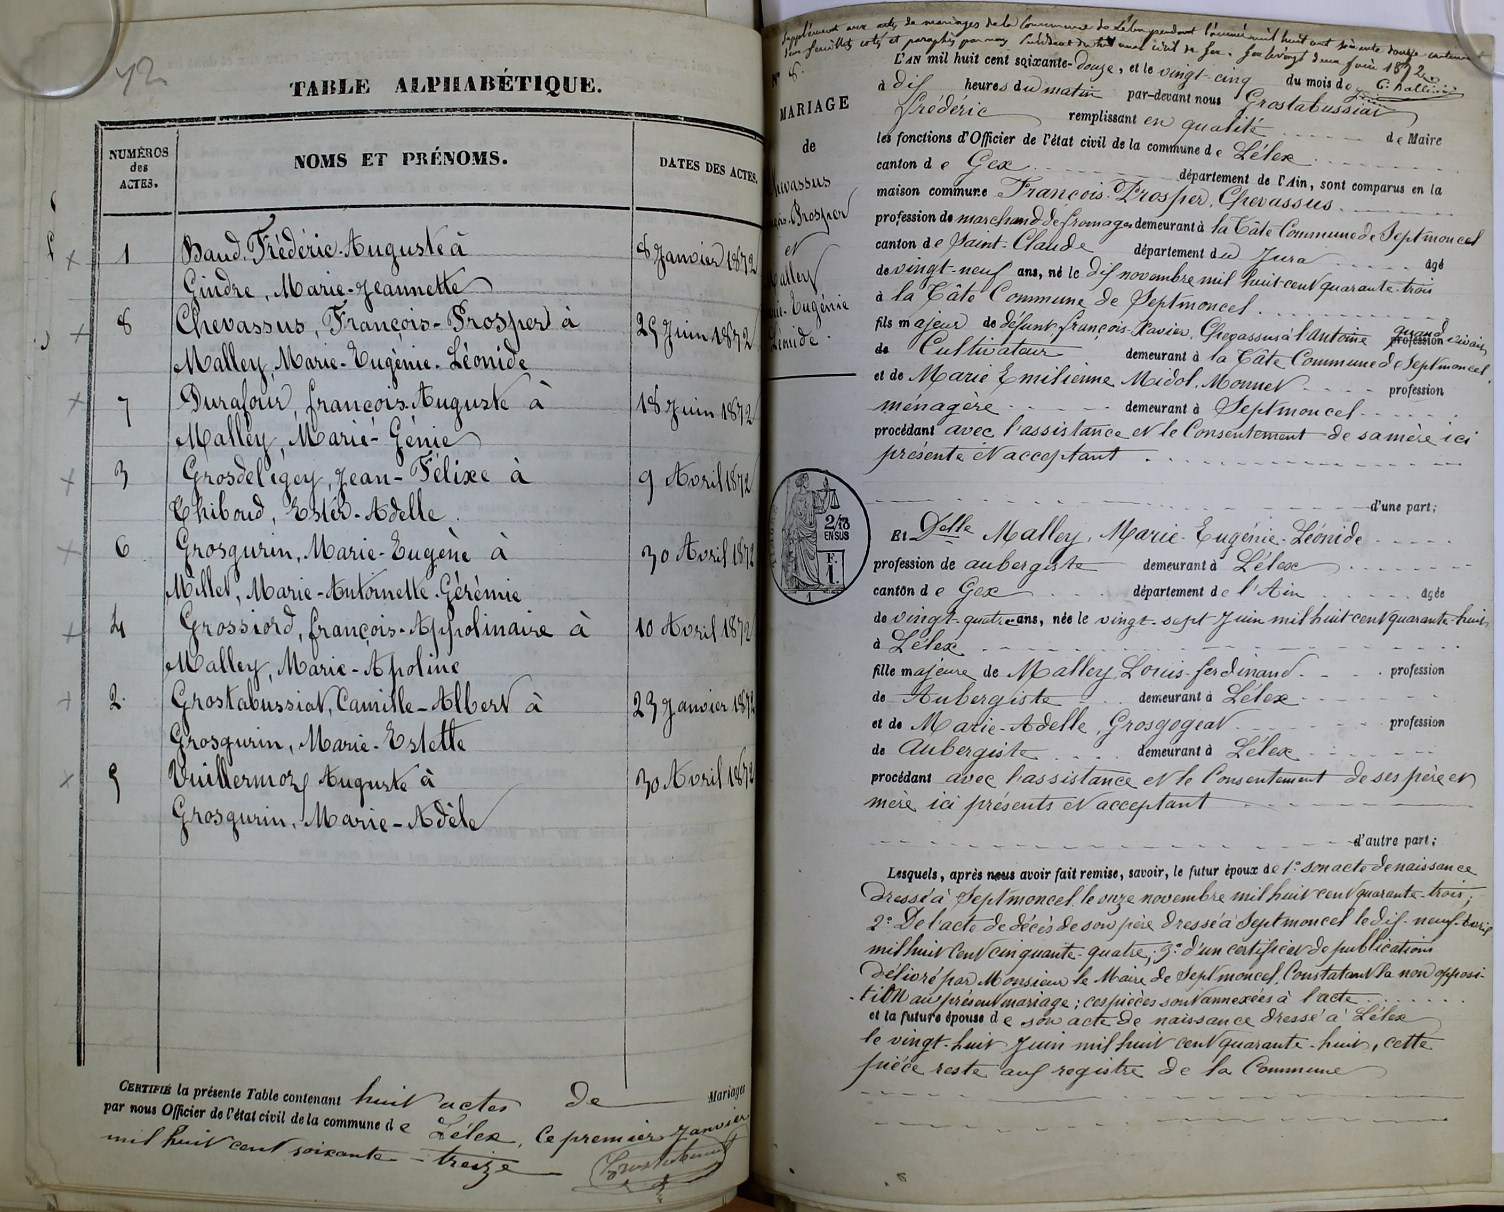 42
TABLE ALPHABÉTIQUE.
NUMÉROS
des
ACTES.
NOMS ET PRÉNOMS.
DATES DES ACTES.
1 Baud, Frédéric-Auguste à 8 Janvier 1872
Gindre, Marie-Jeannette
8 Chevassus, François-Prosper à 25 Juin 1872
Malley, Marie-Eugénie-Léonide
7 Durafour, françois-Auguste à 18 Juin 1872
Malley, Marie-Génie
3 Grosdelégey, Jean-Félixe à 9 Avril 1872
Thiboud, Ester-Adelle
6 Grosgurin, Marie-Eugène à 30 Avril 1872
Millet, Marie-Antoinette-Gérémie
4 Grossiord, françois-Appolinaire à 10 Avril 1872
Malley, Marie-Apoline
2 Grostabussiat, Camille-Albert à 23 Janvier 1872
Grosgurin, Marie-Estelle
5 Vuillermoz Auguste à 30 Avril 1872
Grosgurin, Marie-Adèle
CERTIFIÉ la présente Table contenant huit actes de Mariages
par nous Officier de l'état civil de la commune de Lélex, ce premier Janvier
mil huit cent soixante-treize
Supplément aux actes de mariages de la Commune de Lélex pendant l'année mil huit cent soixante douze contenant
deux feuillets cotés et paraphés par nous Président du tribunal civil de Gex. Gex le vingt deux Juin 1872
N° 8.
MARIAGE
de
Chevassus
Prosper
et
Malley
Eugénie
Léonide.
L'AN mil huit cent soixante-douze, et le vingt-cinq du mois de Juin
à dix heures du matin par-devant nous Grostabussiat
frédéric remplissant en qualité de Maire
les fonctions d'Officier de l'état civil de la commune de Lélex
canton de Gex département de l'Ain, sont comparus en la
maison commune François-Prosper, Chevassus
profession de marchand de fromages demeurant à la Tâte Commune de Septmoncel
canton de Saint-Claude département du Jura âgé
de vingt-neuf ans, né le dix novembre mil huit cent quarante-trois
à la Tâte Commune de Septmoncel
fils majeur de défunt françois-Xavier, Chevassus à l'antoine quand vivait profession
de Cultivateur demeurant à la Tâte Commune de Septmoncel,
et de Marie Emilienne Midol-Monnet profession
ménagère demeurant à Septmoncel
procédant avec l'assistance et le Consentement de sa mère ici
présente et acceptant
d'une part;
2/10
EN SUS
F.
1.
1
Et Delle Malley, Marie-Eugénie-Léonide
profession de aubergiste demeurant à Lélex
canton de Gex département de l'Ain âgée
de vingt-quatre ans, née le vingt-sept Juin mil huit cent quarante-huit
à Lélex
fille majeure de Malley, Louis-ferdinand profession
de Aubergiste demeurant à Lélex
et de Marie-Adelle, Grosgogeat profession
de Aubergiste demeurant à Lélex
procédant avec l'assistance et le Consentement de ses père et
mère ici présents et acceptant
d'autre part;
Lesquels, après nous avoir fait remise, savoir, le futur époux de 1° son acte de naissance
dressé à Septmoncel, le onze novembre mil huit cent quarante-trois;
2° De l'acte de décès de son père dressé à Septmoncel le dix-neuf Avril
mil huit cent cinquante-quatre; 3° d'un certificat de publications
délivré par Monsieur le Maire de Septmoncel, Constatant la non opposi-
-tion au présent mariage; ces pièces sont annexées à l'acte
et la future épouse de son acte de naissance dressé à Lélex
le vingt-huit Juin mil huit cent quarante-huit, cette
pièce reste aux registre de la Commune